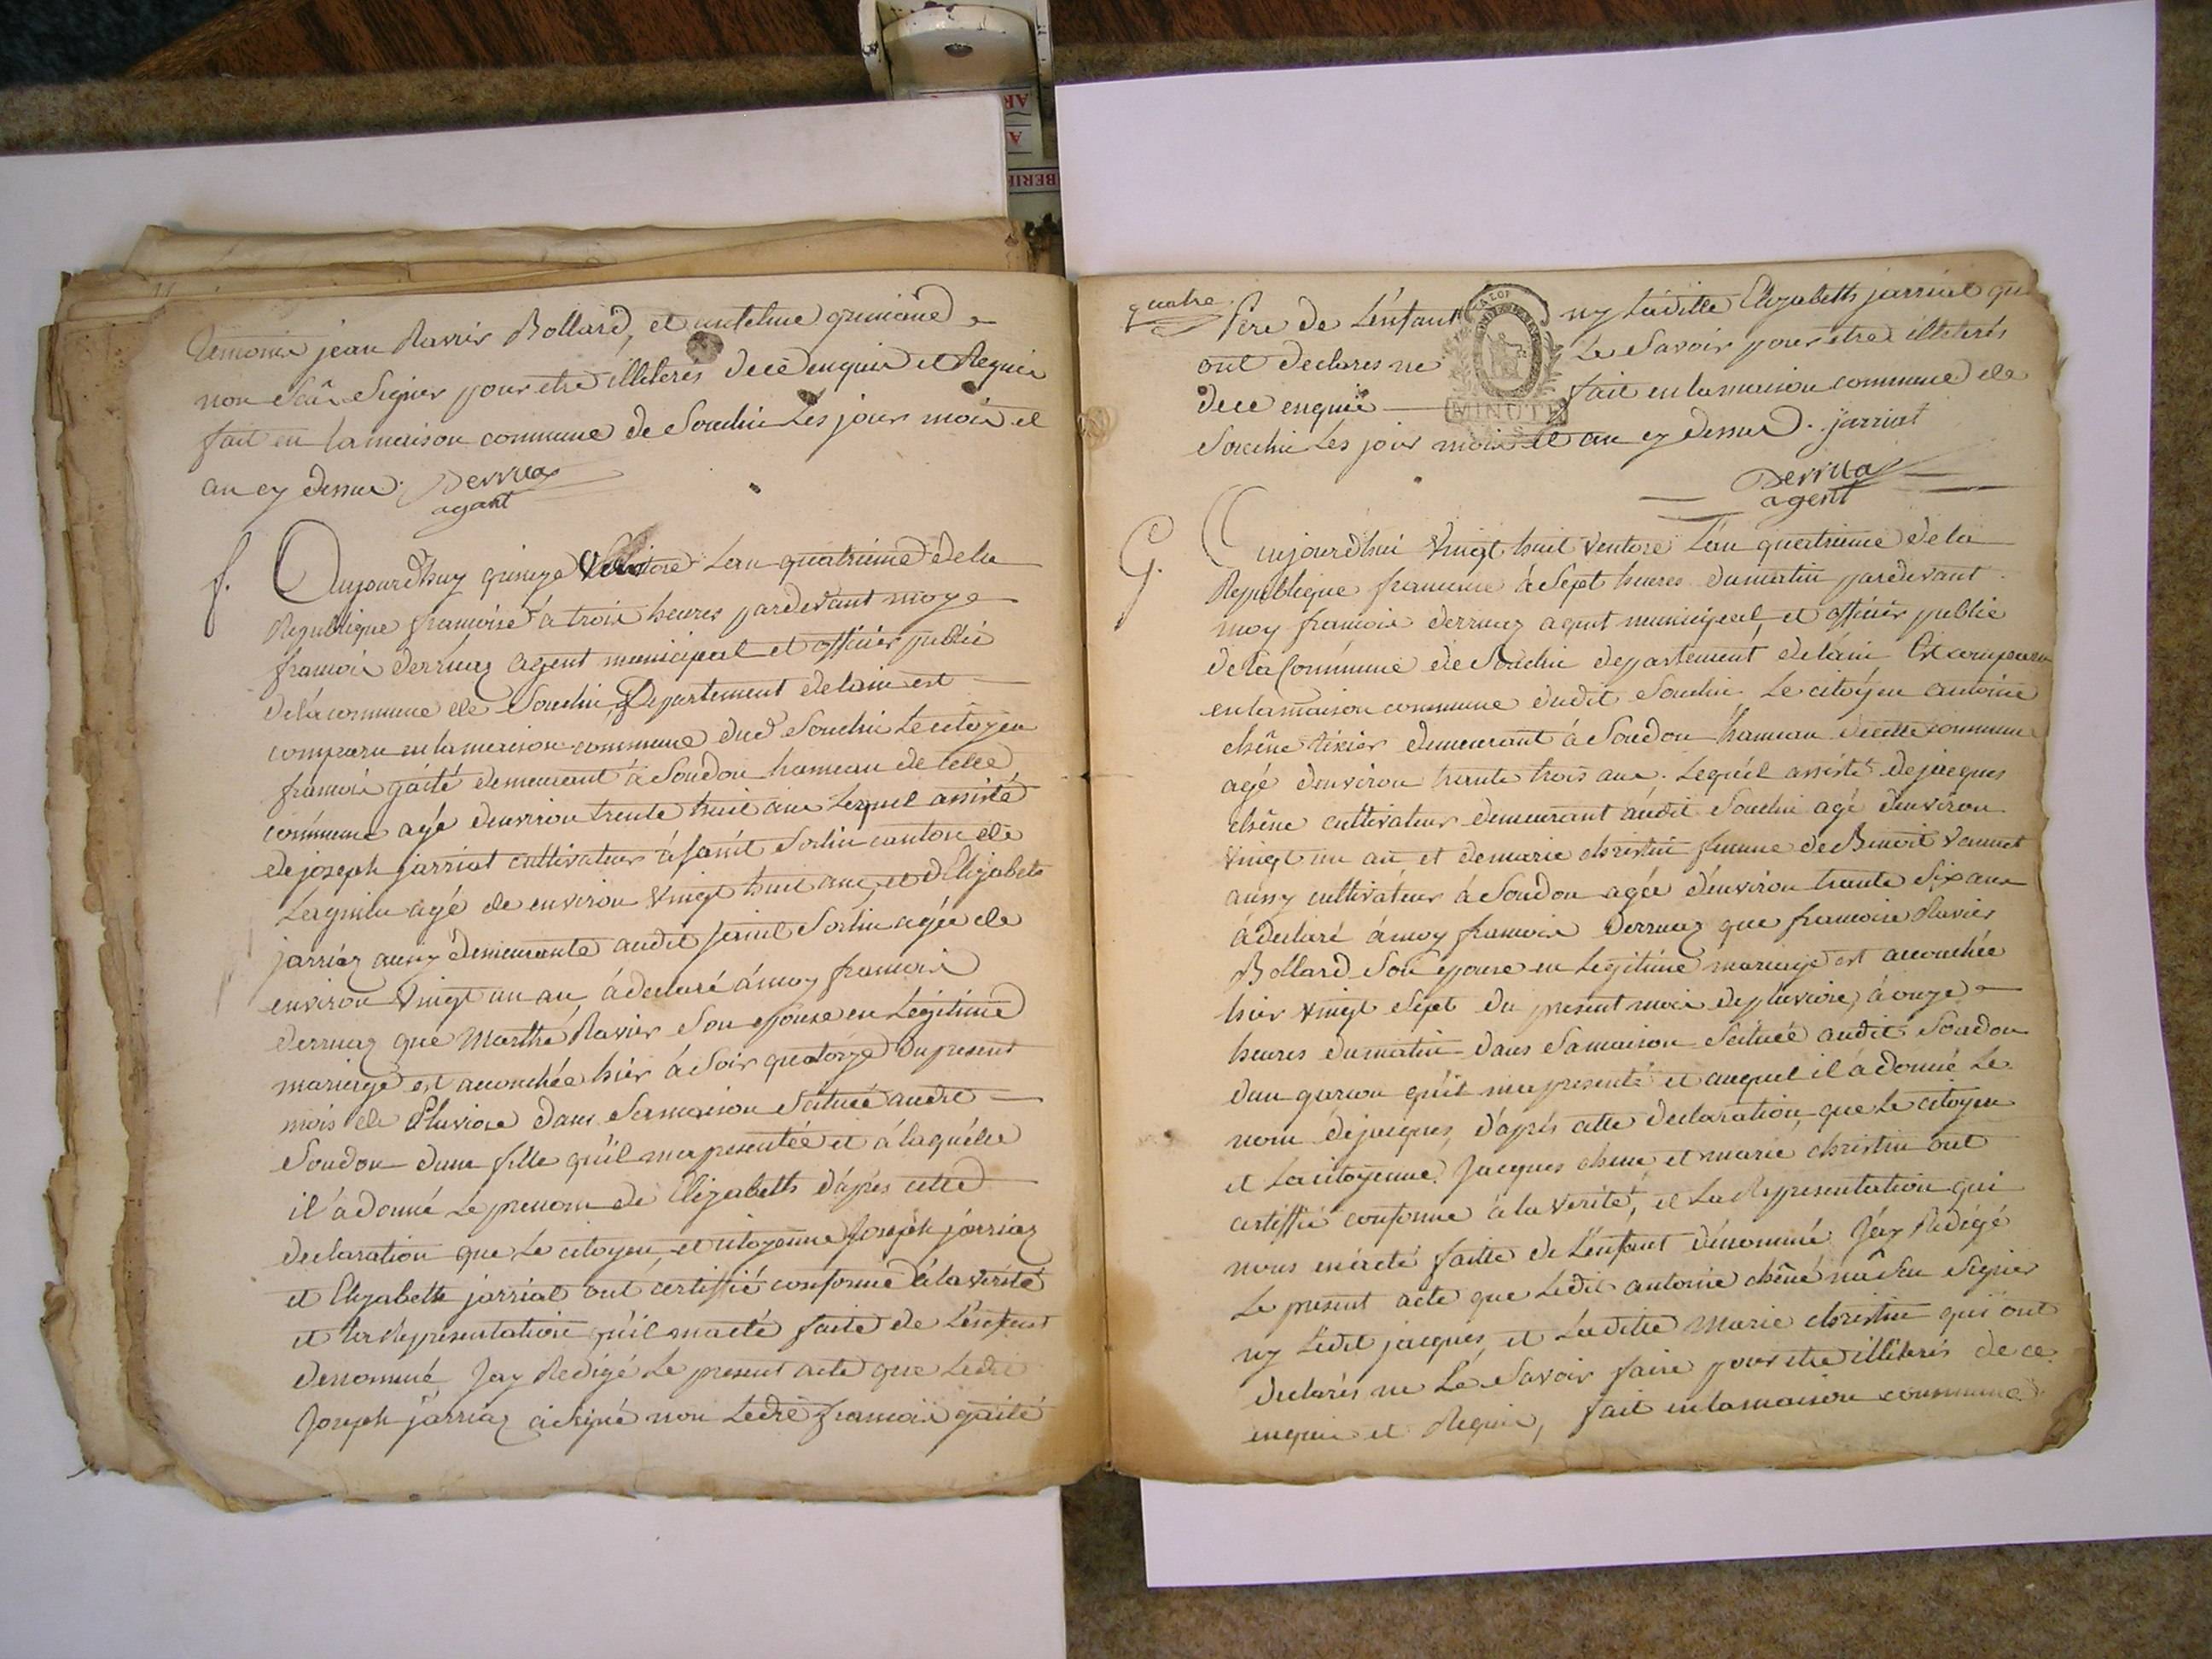 temoins jean Ravier Bollard, et antelme grimand
non Scû Signer pour etre illiterés dece enquis et Requis
fait en lamaison commune de Souclin Les jour mois et
an cy dessus. Derruaz
agant
f. Aujourd'huy quinze Ventose Lan quatrieme dela
Republique francoise à trois heures pardevant moy
francois derruaz agent municipal et officier public
delacommune de Souclin, Departement delain est
comparu enlamaison commune dud Souclin Le citoyen
francois gaité demeurant à Soudon hameau de cette
commune agé denviron trente huit ans Lequel assisté
dejoseph jarriat cultivateur à saint Sorlin canton de
Lagnieu agé de environ vingt huit ans, et dElizabets
jarriaz aussy demeurante audit saint Sorlin agée de
environ vingt un an, àdeclaré àmoy francois
derruaz que Marthe Ravier Son epouse en Legitime
mariage est accouchée hier à Soir quatorze dupresent
mois de Pluviose dans Samaison Scituée audit
Soudon dune fille quil ma presentée et à laquelle
il à donné Le prenom de Elizabeth d'apres cette
declaration que Le citoyen, et citoyenne Joseph jarriaz
et Elizabeth jarriat ont certiffié conforme àla verité
et la Representation quil maeté faite de L'enfant
denommé Jay Redigé Le present acte que Ledit
Joseph jarriaz asigné non Ledit francois gaité
quatre
Père de L'enfant ny Laditte Elizabeth jarriat qui
ont declarés ne Le Savoir pour etre illiterés
LA LOI
dece enquis fait en lamaison commune de
MINUTE
Souclin Les jour mois et an cy dessus. jarriat
Derruaz
agent
G. Aujourdhui vingt huit ventose L'an quatrieme de la
Republique francoise à Sept heures dumatin pardevant
moy francois derruaz agent municipal, et officier public
de La Commune de Souclin departement delain Est comparu
en lamaison commune dudit Souclin Le citoyen antoine
chêne tixier demeurant à Soudon hameau decette commune
agé denviron trente trois ans. Lequel assisté dejacques
chêne cultivateur demeurant audit Souclin agé denviron
vingt un an et demarie christin femme de Benoit vannet
aussy cultivateur à Soudon agée d'environ trente Six ans
à declaré àmoy francois Derruaz que francoise Ravier
Bollard Son epouse en Legitime mariage est accouchée
hier vingt Sept du present mois depluviose, à onze
heures dumatin dans Samaison Scituée audit Soudon
dun garcon quil ma presenté et auquel il à donné Le
nom dejacques, d'aprés cette declaration, que Le citoyen
et Lacitoyenne Jacques chene et marie christin ont
certiffié conforme àla verité, et La Representation qui
nous enàeté faitte de L'enfant dénommé Jay Redigé
Le present acte que Ledit antoine chêne nàSeu Signer
ny Ledit jacques, et Laditte Marie christin qui ont
declarés ne Le Savoir faire pour etre illiterés de ce
enquis et Requis, fait enlamaison commune